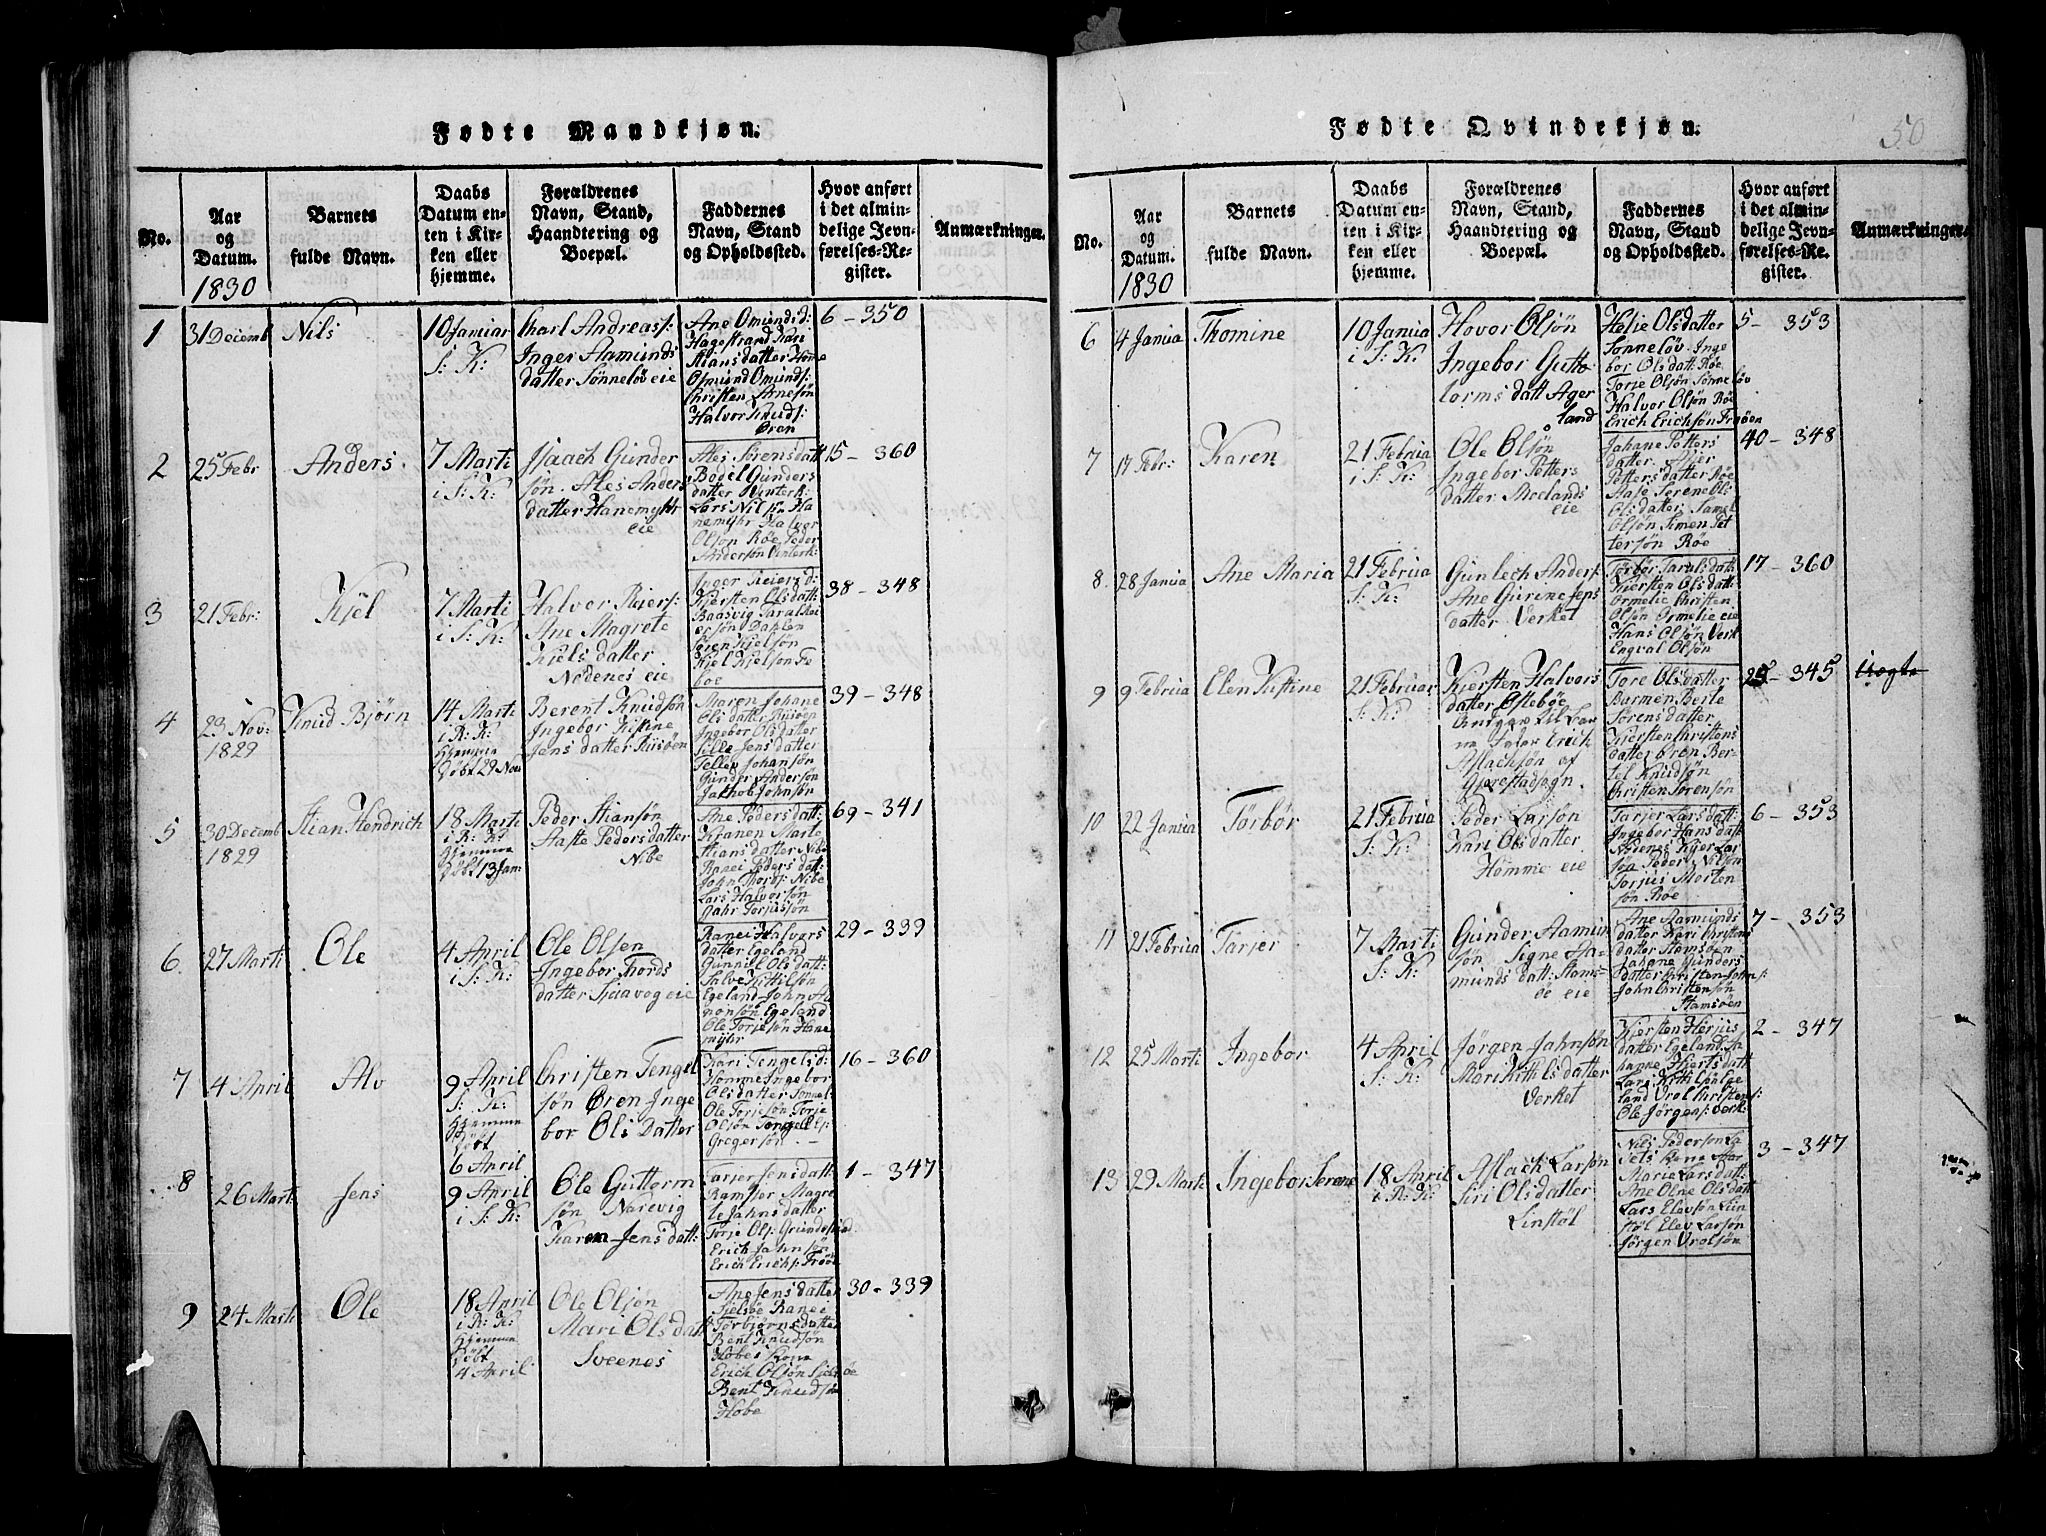 Fødte Mandkjøn.
No.
Aar
og
Datum.
1830
Barnets
fulde Navn.
Daabs
Datum en-
ten i Kir-
ken eller
hjemme.
Forældrenes
Navn, Stand,
Haandtering og
Boepæl.
Faddernes
Navn, Stand
og Opholdssted.
Hvor anført
i det almin-
delige Jevn-
førelses-Re-
gister.
Anmærkninger.
1
31 Decemb
Nils
10 Januar
S: K:
Charl Andreass:
Inger Aamunds
datter Sønneløv eie
Ane Omunds d:
Hagestrand Kari
Hans datter Home
Osmund Omunds:
Christen Arnesøn
Halvor Knuds:
Øren
6 - 350
2
25 Febr
Anders.
7 Marti
i S: K:
Isaach Gunder
søn. Ales Anders
datter Hanemyhr
eie
Ales Sørensdatt
Bodel Gunders
datter Vinterk:
Lars Nilsøn Ha
nemyhr Halvor
Olsøn Røe Peder
Andersøn Vinterk:
15 - 360
3
21 Febr:
Kjel
7 Marti
i S: K:
Halvor Reiers:
Ane Magrete
Kjels datter
Nødenes eie
Inger Reiers d:
Kjersten Olsdatt
Baasvig Taral Rei
ersøn Dahlen
Søren Kjelsøn
Kjel Kjelsøn Fe
boe
38 - 348
4
29 Nov:
1829
Knud Bjørn
14 Marti
i R: K:
hjemme
døbt 29 Nov
Berent Knudsøn
Ingebor Kistine
Jens datter Risøen
Maren Johane
Ols datter Risøen
Ingebor Olsdatter
Sille Jens datter
Tellef Johansøn
Gunder Andersøn
Jachob Johnsøn
39 - 348
5
30 Decemb
1829
Stian Hendrich
18 Marti
i R: K:
hjemme
døbt 13 Jan
Peder Stiansøn
Aaste Peders datter
Nibe
Ane Pedersdatt:
Kranen Marte
Stians datter Nibe
Ranei Peders datt:
John Thords: Nibe
Lars Halvorsøn
Gahr Torjusøn
69 - 341
6.
27 Marti
Ole
4 April
i S: K:
Ole Olsen
Ingebor Thords
datter Sjaavog eie
Ranei Halvors
datter Egeland
Gunnild Olsdatt:
Salve Kittilsøn
Egeland John Aa
nonsøn Egeland
Ole Torjesøn Hane
myhr
29 - 339
7
4 April
Alv
9 April
S: K:
hjemme
døbt
6 April
Christen Tengel
søn Øren Inge
bor Ols Datter
Kari Tengels d:
Homme Ingebor
Olsdatter Sonnel:
Ole Torjesøn Torje
Olsøn Tengel
Gregersøn
16 - 360
8
26 Marti
Jens
9 April
i S: K:
Ole Guttorm
søn Narevig
Karen Jens datt:
Tarjer Jensdatt:
Ramsfør Magre
te Jahns datter
Torje Ols: Grundesund
Erich Jahnsøn
Erich Erichs: Frøen
1 - 347
9
24 Marti
Ole
18 April
i R: K:
hjemme
døbt
4 April
Ole Olsøn
Mari Ols datt
Sveenes
Ane Jens datter
Sielsøe Ranei
Torbjørnsdatter
Bent Knudsøn
Hobes Kone
Erich Olsøn Sielsøe
Bent Knudsøn
Hobe
30 - 339
Fødte Qvindekjøn.
50
No.
Aar
og
Datum.
1830
Barnets
fulde Navn.
Daabs
Datum en-
ten i Kir-
ken eller
hjemme.
Forældrenes
Navn, Stand,
Haandtering og
Boepæl.
Faddernes
Navn, Stand
og Opholdssted.
Hvor anført
i det almin-
delige Jevn-
førelses-Re-
gister.
Anmærkninger.
6
4 Janua
Thomine
10 Janua
i S: K:
Hovor Olsøn
Ingebor Gutto
lorms datt Ager
land
Helje Olsdatter
Sonneløv. Inge
bor Olsdatt: Røe
Torje Olsøn Sønneløv
Halvor Olsøn Røe
Erich Erichsøn Frøen
5 - 353
7
17 Febr:
Karen
21 Februa
i S: K:
Ole Olsøn
Ingebor Petters
datter Moelands
eie
Johane Petters
datter
Petters datter Røe
Aase Serene Ols
Olsdatter Samel
Olsøn Simen Pet
tersøn Røe
40 - 348
8.
28 Janua
Ane Maria
21 Februa
S: K:
Gunlech Anders:
Ane Gurine Jens
datter Verket
Torbor Taralsdatt:
Kjersten Olsdatt:
Ormelie Christen
Olsøn Ormelie eie
Hans Olsøn Verk
Engval Olsøn
17 - 360
9
9 Februa
Elen Kistine
21 Februar
S: K:
Kjersten Halvors
datter Østebøe
Fader Erich
Aslachsøn af
Gjerestadsogn.
Tore Olsdatter
Barmen Berte
Sørensdatter
Kjersten Christens
datter Øren Ber-
tel Knudsøn
Christen Sørensøn
25 - 345
uægte
10
22 Janua
Torbor
21 Februa
S: K:
Peder Larsøn
Kari Olsdatter
Homme eie
Tarjer Larsdatt:
Ingebor Hansdatt
Nødenes Kjer Lar
søn Peder Nilsøn
Torjus Morten
søn Røe
6 - 353
11
21 Februa
Tarjer
7 Marti
S: K:
Gunder Aamun
søn Signe Aa-
munds datt: Stams-
øe eie
Ane Aamunds
datter Kari Christens
datter Stamsøen
Johane Gunders
datter Christen Johns:
John Christensøn
Stamsøen
7 - 353
12
25 Marti
Ingebor
4 April
S: K:
Jørgen Jahnsøn
Mari Kittils datter
Verket
Kjersten Herjus
datter Egeland Jo
hanne Skiertsdatt
Lars Kittilsøn Ege
land Vrol Christens:
Ole Jørgens: Verk:
2 - 347
13
29 Mart:
Ingebor Serene
18 April
i R: K:
Aslach Larsøn
Siri Olsdatter
Linstøl
Nils Pedersøn La
Marie Larsdatt:
Ane Oline Olsdatt
Lars Elevsøn Lin
støl Elev Larsøn
Jørgen Vrolsøn
3 - 347